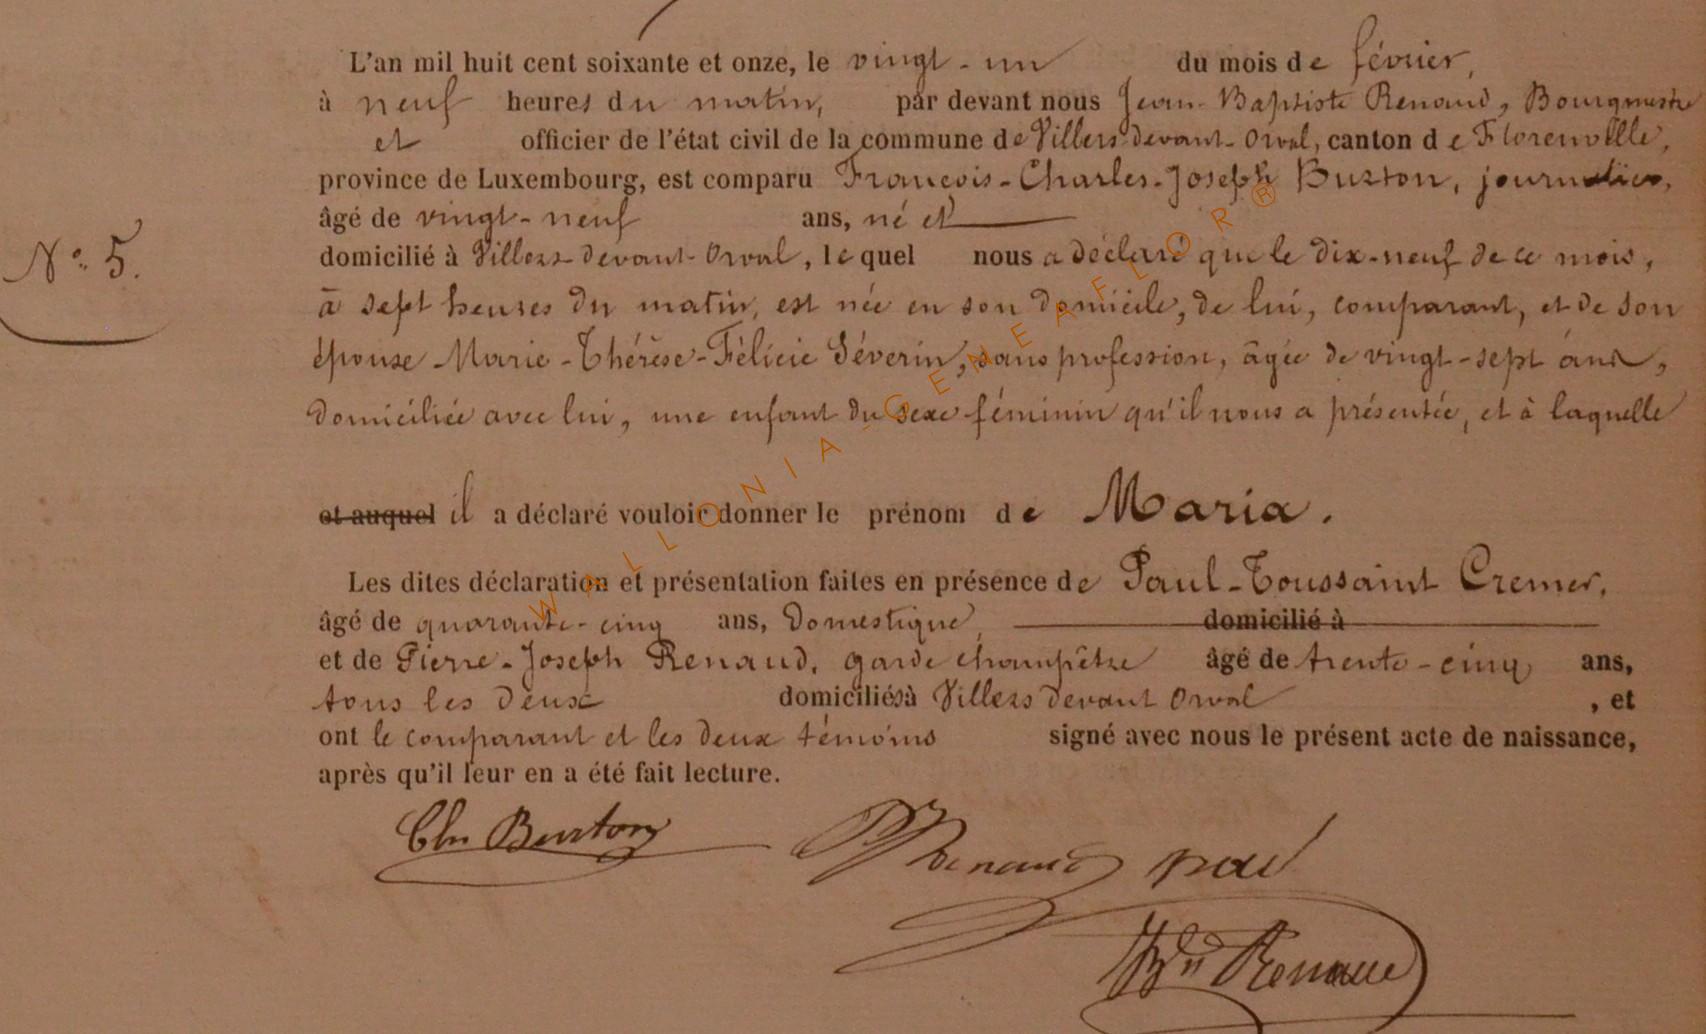 L'an mil huit cent soixante et onze, le vingt-un du mois de février,
à neuf heures du matin, par devant nous Jean-Baptiste Renaud, Bourgmestre
et officier de l'état civil de la commune de Villers devant-Orval, canton de Florenville,
province de Luxembourg, est comparu François-Charles-Joseph Burton, journalier,
âgé de vingt-neuf ans, né et
N° 5.
domicilié à Villers devant-Orval, lequel nous a déclaré que le dix-neuf de ce mois,
à sept heures du matin, est née en son domicile, de lui, comparant, et de son
épouse Marie-Thérèse-Félicie Séverin, sans profession, âgée de vingt-sept ans,
domiciliée avec lui, une enfant du sexe féminin qu'il nous a présentée, et à laquelle
et auquel il a déclaré vouloir donner le prénom de Maria.
Les dites déclaration et présentation faites en présence de Paul-Toussaint Cremer,
âgé de quarante-cinq ans, domestique, domicilié à
et de Pierre-Joseph Renaud, garde champêtre âgé de trente-cinq ans,
tous les deux domiciliés à Villers devant Orval, et
ont le comparant et les deux témoins signé avec nous le présent acte de naissance,
après qu'il leur en a été fait lecture.
Chs Burton Renaud
Renaud
WALLONIA-GENEAFLOR®